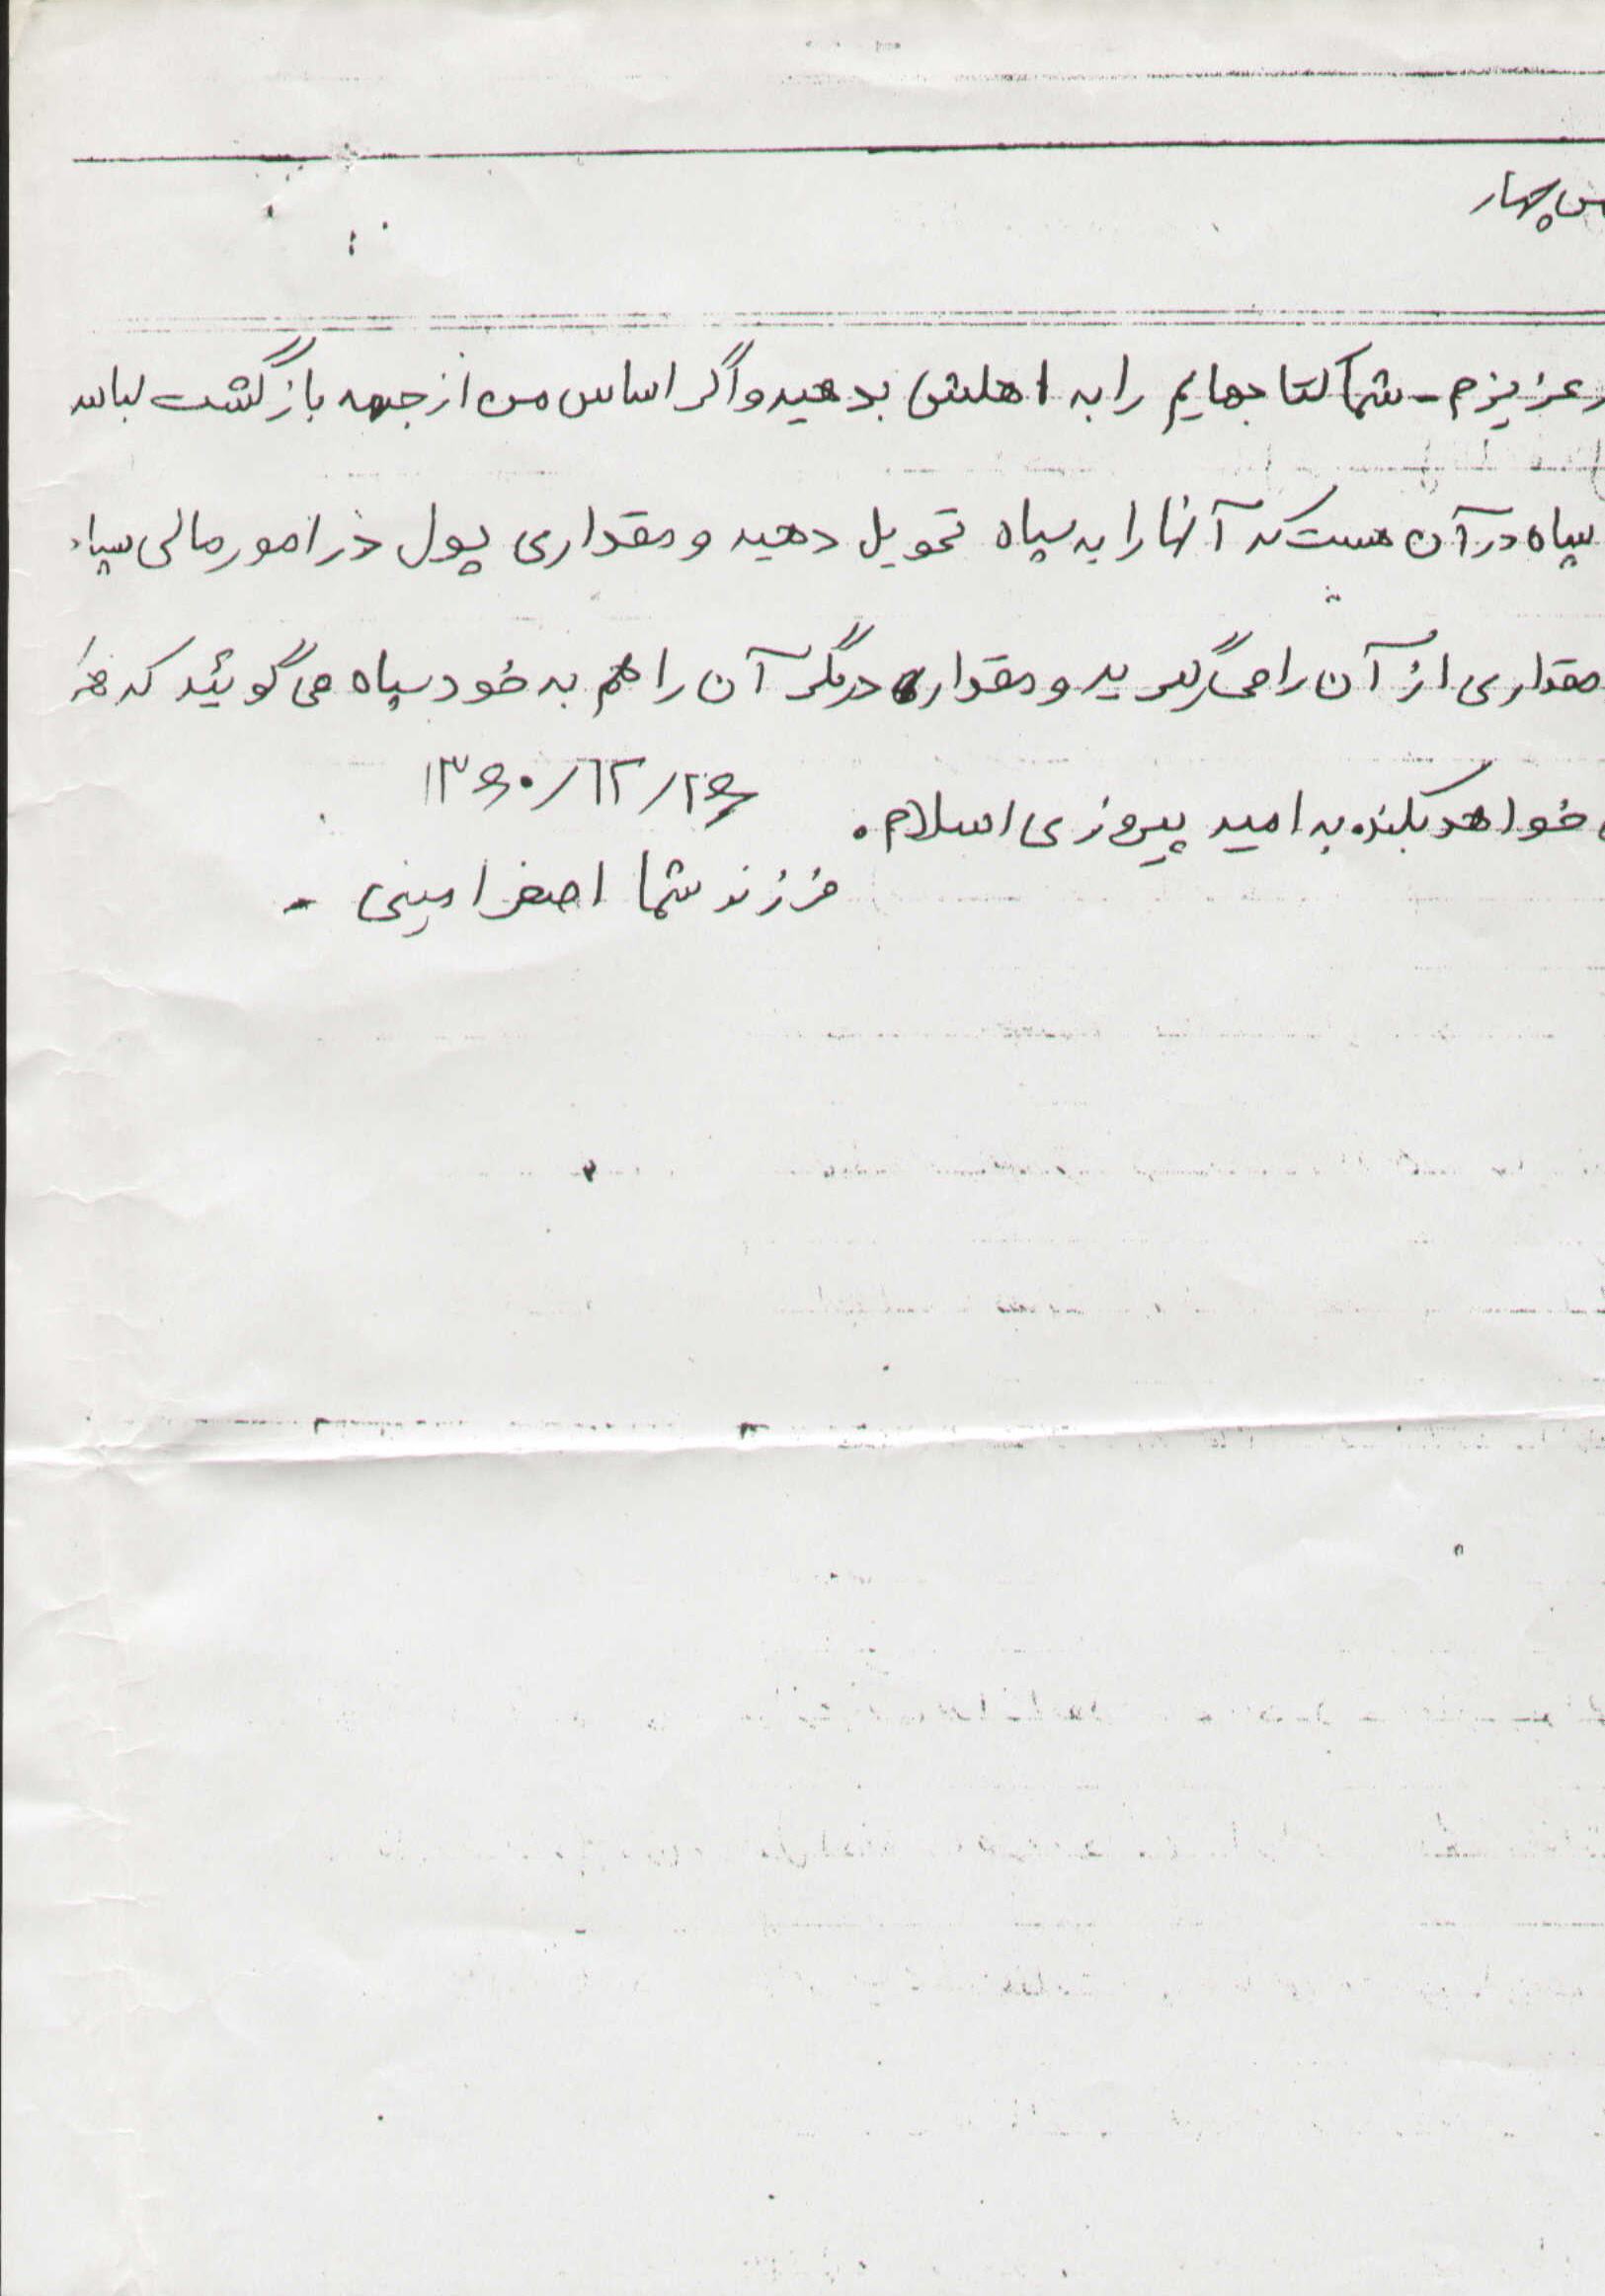 چهار
عزیزم - شما کتابهایم را به اهلش بدهید و اگر اساس من از جبهه بازگشت لباس
سپاه در آن هست که آنها را به سپاه تحویل دهید و مقداری پول در امور مالی سپاه
مقداری از آن را می‌گیرید و مقداری دیگر آن را هم به خود سپاه می‌گوئید که هر
خواهد بکند. به امید پیروزی اسلام. ۱۳۶۰/۱۲/۲۶
فرزند شما اصغر امینی -